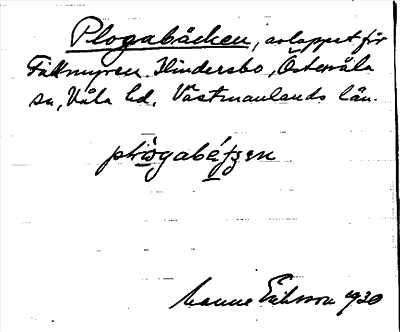 Plogabäcken, avloppet för
Fallmyren. Hindersbo, Östervåla
sn, Våla hd. Västmanlands län.
Manne Eriksson 1930